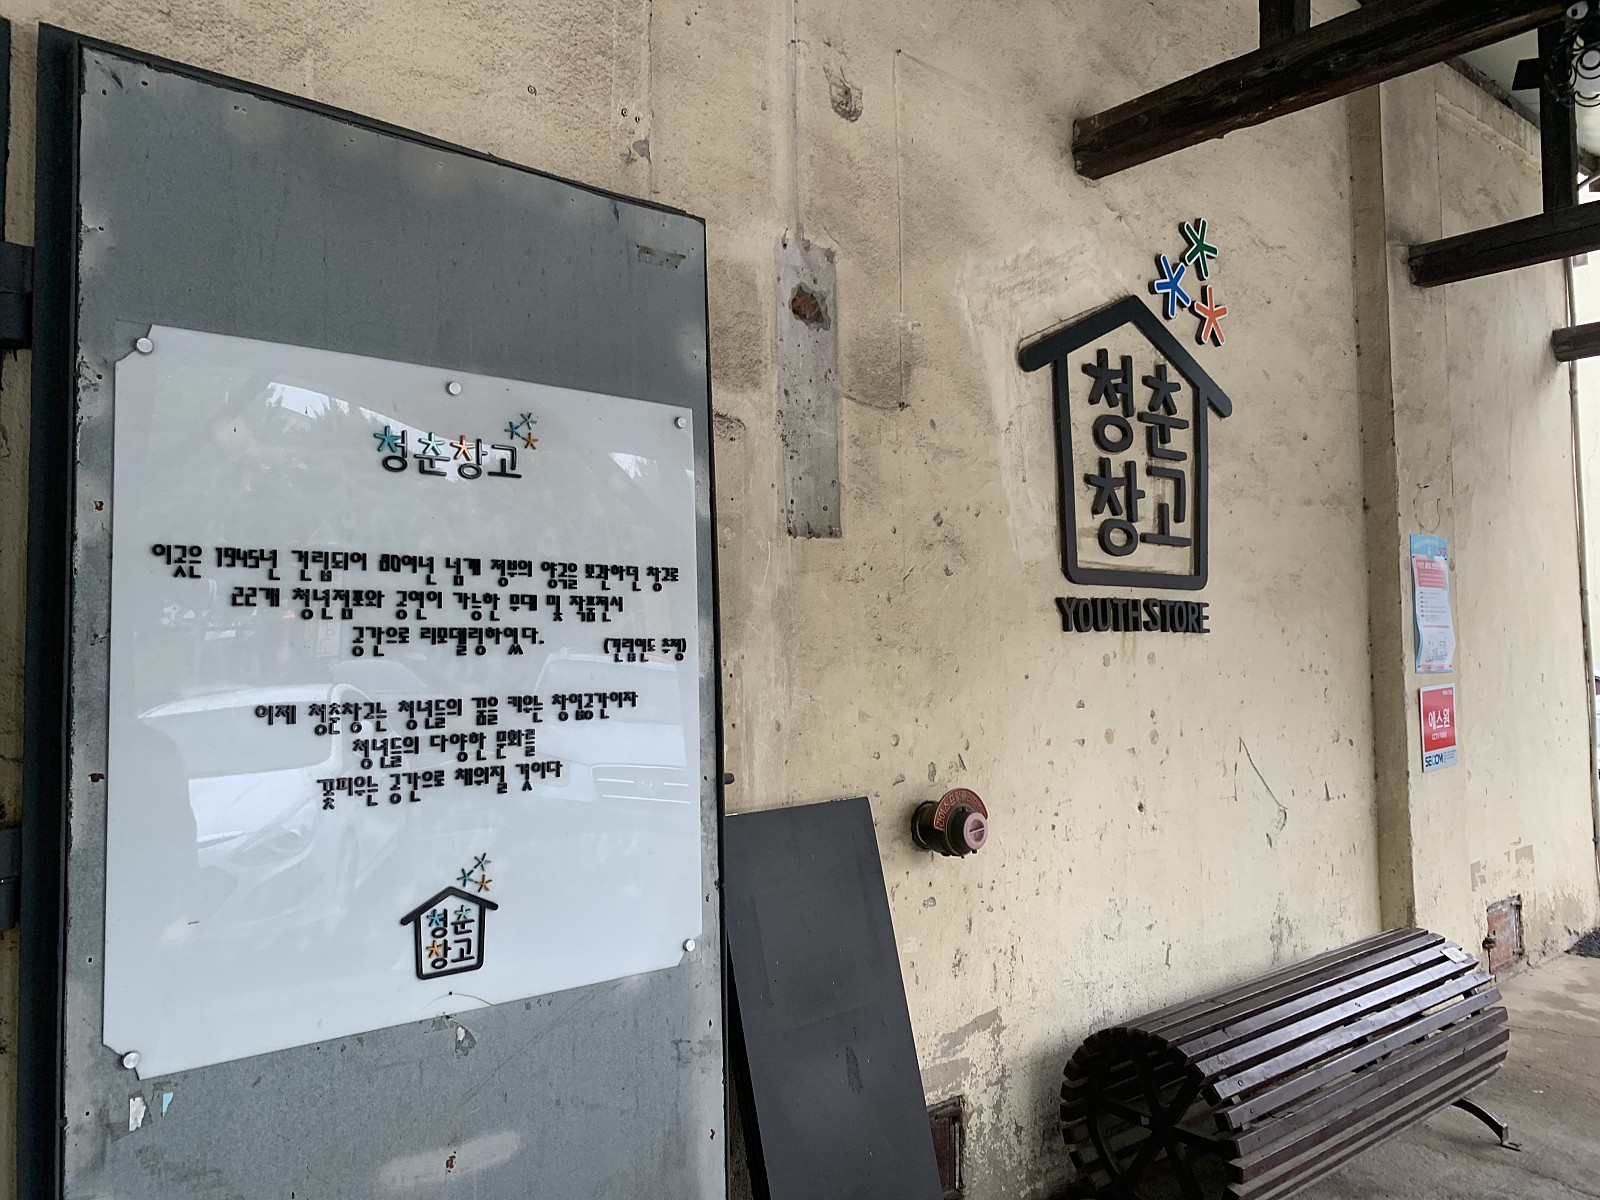 청춘창고
이곳은 1945년 건립되어 80여년 넘게 정부의 양곡을 보관하던 창고로
22개 청년점포와 공연이 가능한 무대 및 작품전시
공간으로 리모델링하였다.
(건립연도 추정)
이제 청춘창고는 청년들의 꿈을 키우는 창업공간이자
청년들의 다양한 문화를
꽃피우는 공간으로 채워질 것이다
청춘
창고
청춘
창고
YOUTH STORE
에스원
SECOM